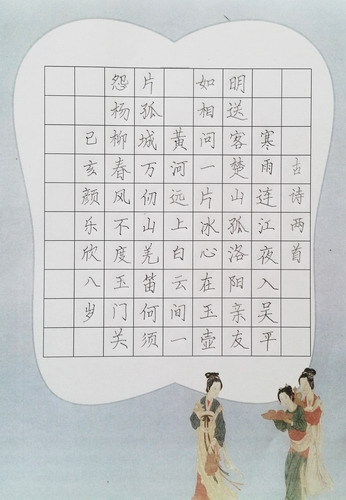 古诗两首
寒雨连江夜入吴平
明送客楚山孤洛阳亲友
如相问一片冰心在玉壶
黄河远上白云间一
片孤城万仞山羌笛何须
怨杨柳春风不度玉门关
己亥颜乐欣八岁